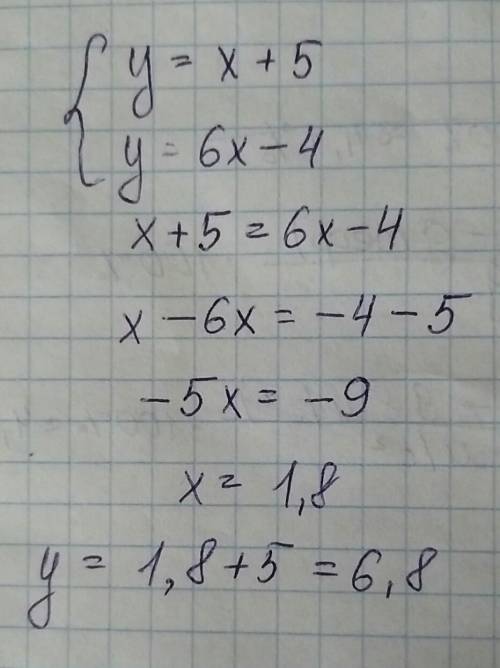 { y = x + 5
y = 6x - 4
x + 5 = 6x - 4
x - 6x = -4 - 5
-5x = -9
x = 1,8
y = 1,8 + 5 = 6,8